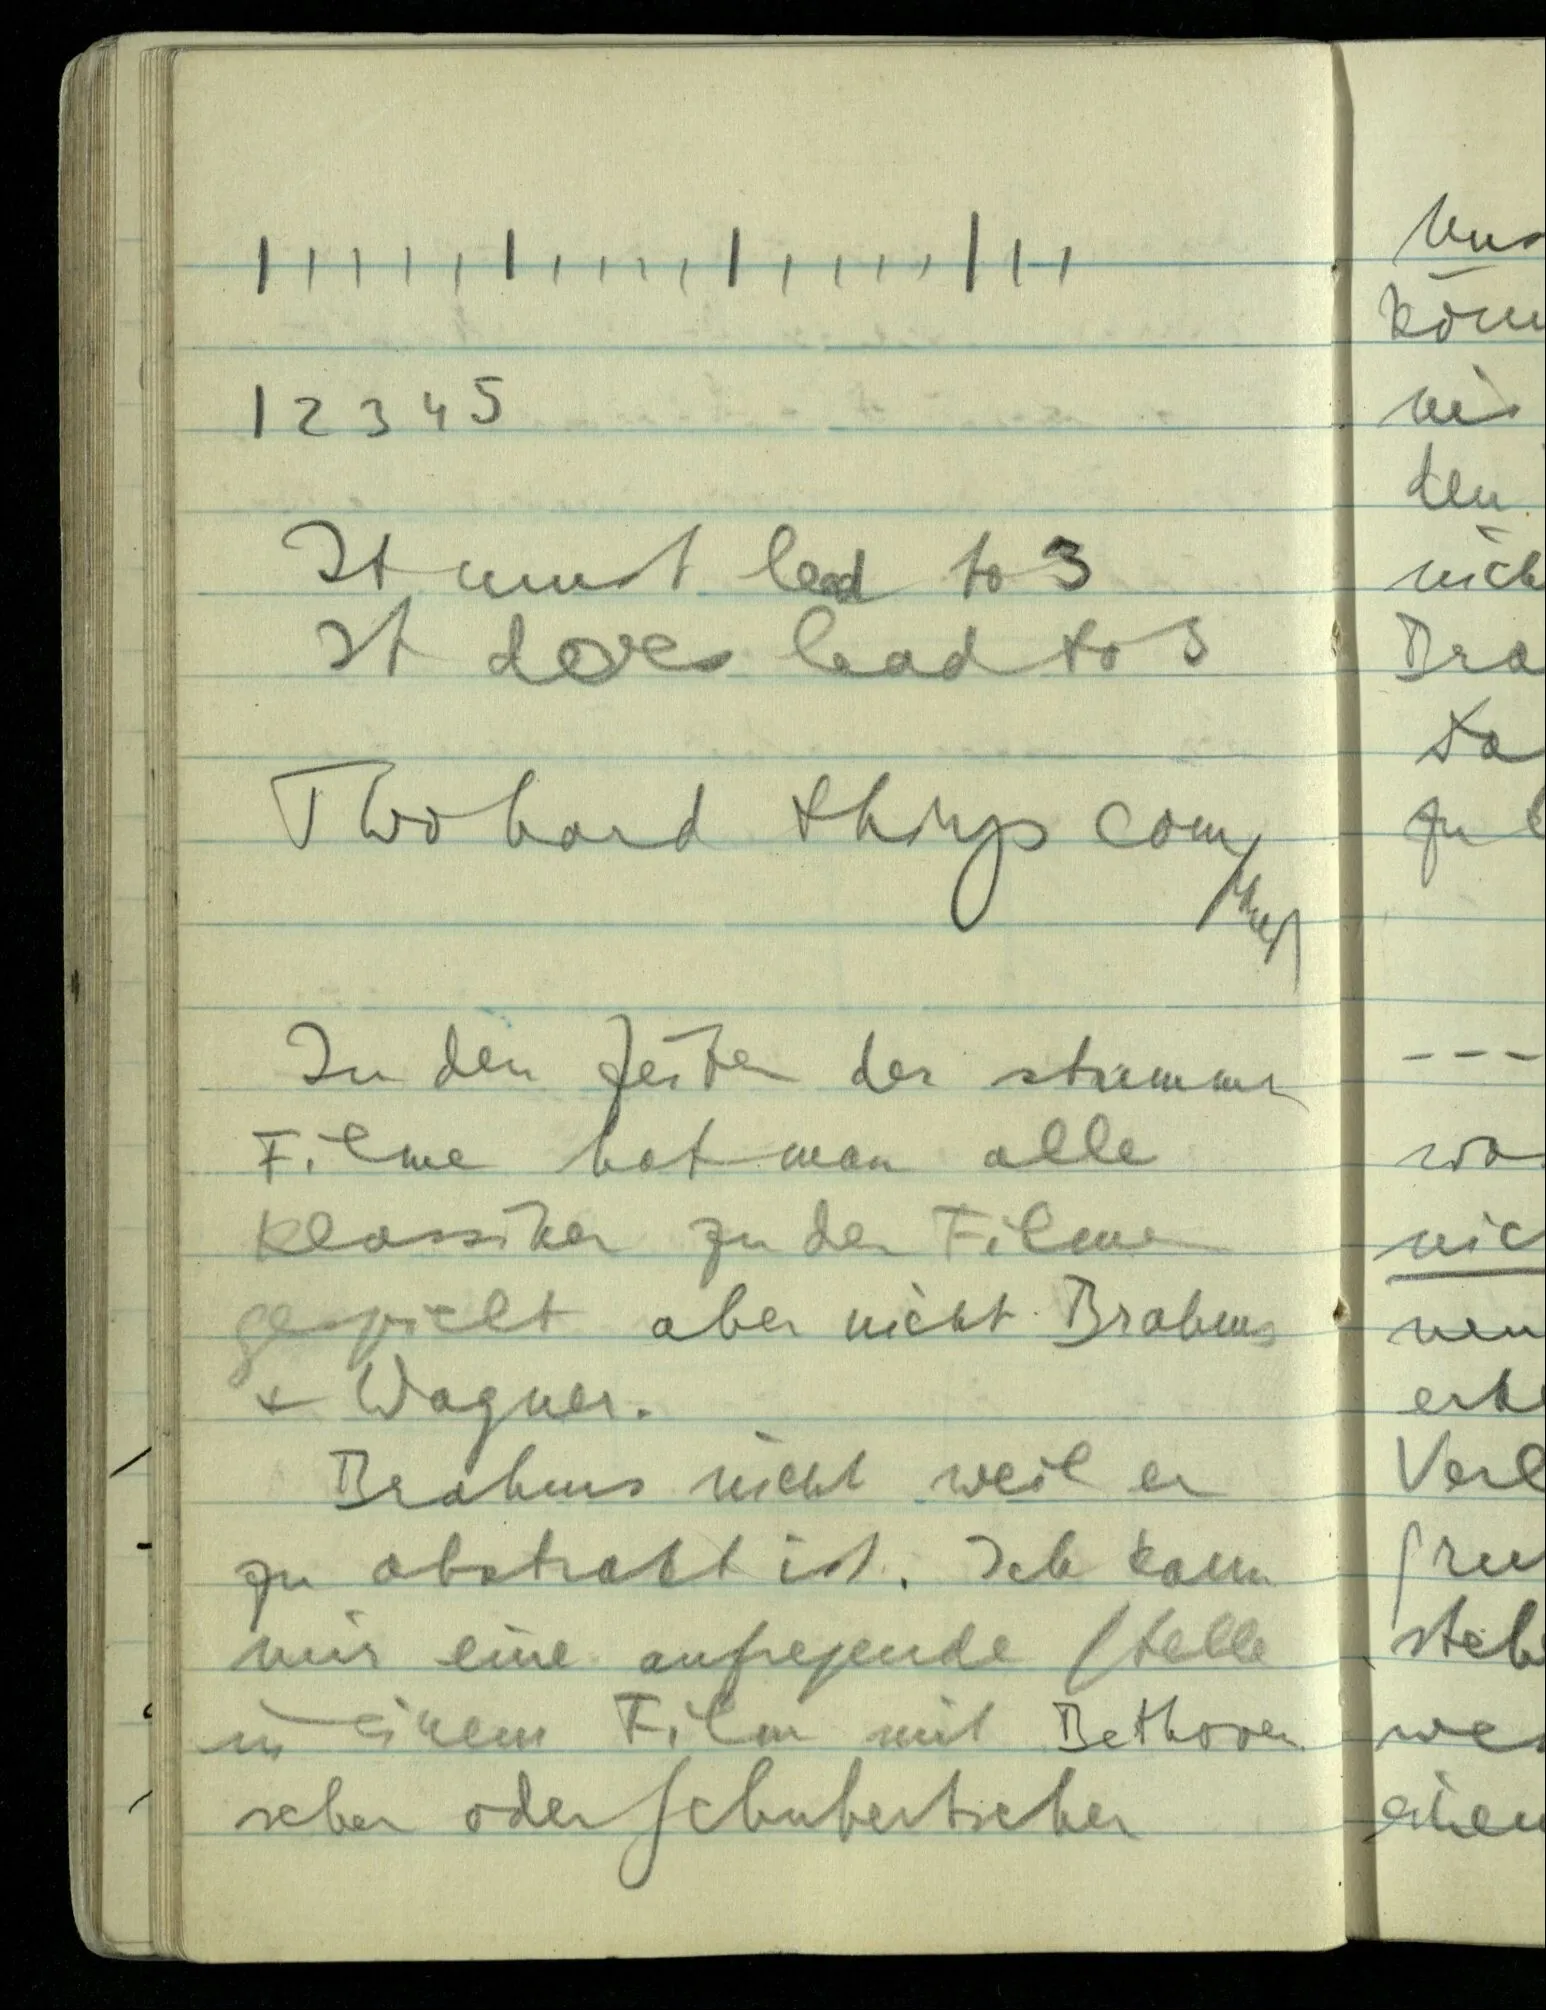 1 2 3 4 5
It must lead to 3
It does lead to 3
Two hard things com
In den Zeiten der stummen
Filme hat man alle
Klassiker zu den Filmen
gespielt aber nicht Brahms
+ Wagner.
Brahms nicht weil er
zu abstrakt ist. Ich kann
mir eine aufregende Stelle
in einem Film mit Bethoven
scher oder Schubertscher
den
nich
Bra
zu
---
nic
Verl
einen